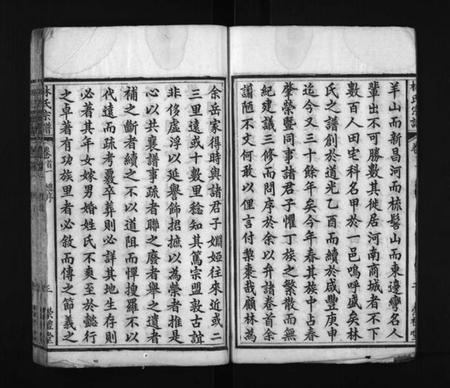 羊山而新昌河而梳髻山而東邊灣名人
輩出不可勝數其徙居河南商城者不下
數百人田宅科名甲於一邑嗚呼盛矣林
氏之譜創於道光乙酉而續於咸豐庚申
迄今又三十餘年矣今年春其族中占春
肇榮暨同事諸君子懼丁族之繁散而無
紀建議三修而問序於余以弁諸卷首余
譾陋不文何敢以俚言付棃棗哉顧林為
余岳家得時與諸君子婣婭往來近或二
三里遠或十數里稔知其篤宗盟敦古誼
非侈虛浮以延譽飾招摭以為榮者推是
心以共襄譜事疏者聯之廢者舉之遺者
補之斷者續之不以道阻而憚搜羅不以
代遠而疏考覈卒葬則必詳其地生存則
必著其年女嫁男婚姓氏不爽至於懿行
之卓著有功族里者必敘而傳之節義之
林氏宗譜
卷首